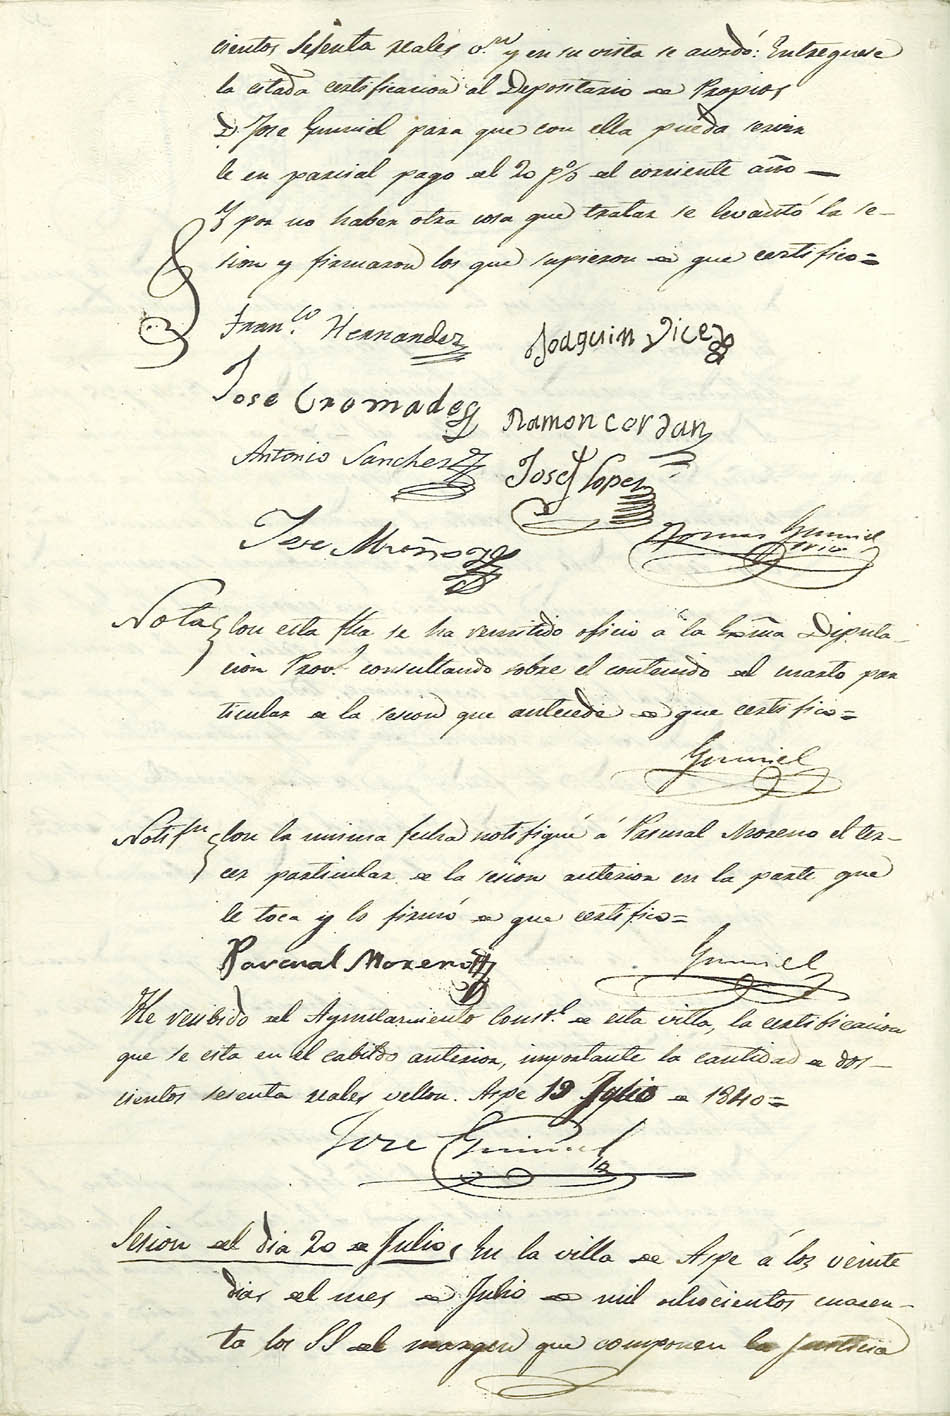 cientos sesenta reales v.n y en su vista se acordó: Entreguese
la citada certificacion al Depositario de Propios
D. Jose Gumiel para que con ella pueda servir
le en parcial pago del 20 p% del corriente año —
Y por no haber otra cosa que tratar se levantó la se-
sion y firmaron los que supieron de que certifico=
Fran.co Hernandez Joaquin Vicez
Jose Cremades Ramon cerdan
Antonio Sanchez Josef Lopez
Jose Tomas Gumiel
Srio
Nota Con esta fha se ha remitido oficio á la Exma Diputa-
cion Prov.l consultando sobre el contenido del cuarto par
ticular de la sesion que antecede de que certifico=
Gumiel
Notifn Con la misma fecha notifiqué á Pascual Moreno el ter-
cer particular de la sesion anterior en la parte que
le toca y lo firmó de que certifico=
Pascual Moreno Gumiel
He recibido del Ayuntamiento Const.l de esta villa, la certificacion
que se cita en el cabildo anterior, importante la cantidad de dos-
cientos sesenta reales vellon. Aspe 19 Julio de 1840=
Jose Gumiel
Sesion del dia 20 de Julio, En la villa de Aspe á los veinte
dias del mes de Julio de mil ochocientos cuaren-
ta los SS del margen que componen la justicia